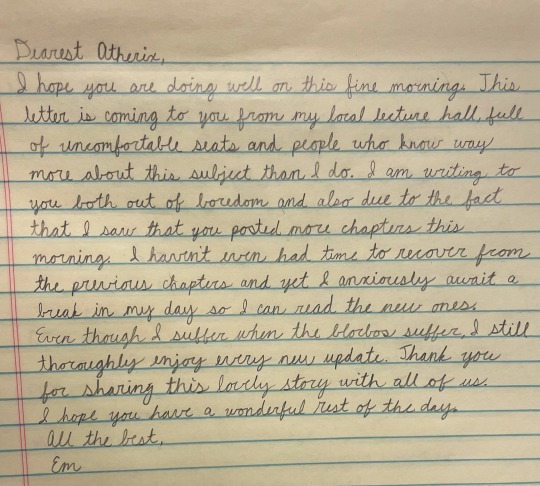 Dearest Atherix,
I hope you are doing well on this fine morning. This
letter is coming to you from my local lecture hall, full
of uncomfortable seats and people who know way
more about this subject than I do. I am writing to
you both out of boredom and also due to the fact
that I saw that you posted more chapters this
morning. I haven't even had time to recover from
the previous chapters and yet I anxiously await a
break in my day so I can read the new ones.
Even though I suffer when the blorbos suffer, I still
thoroughly enjoy every new update. Thank you
for sharing this lovely story with all of us.
I hope you have a wonderful rest of the day.
All the best,
Em